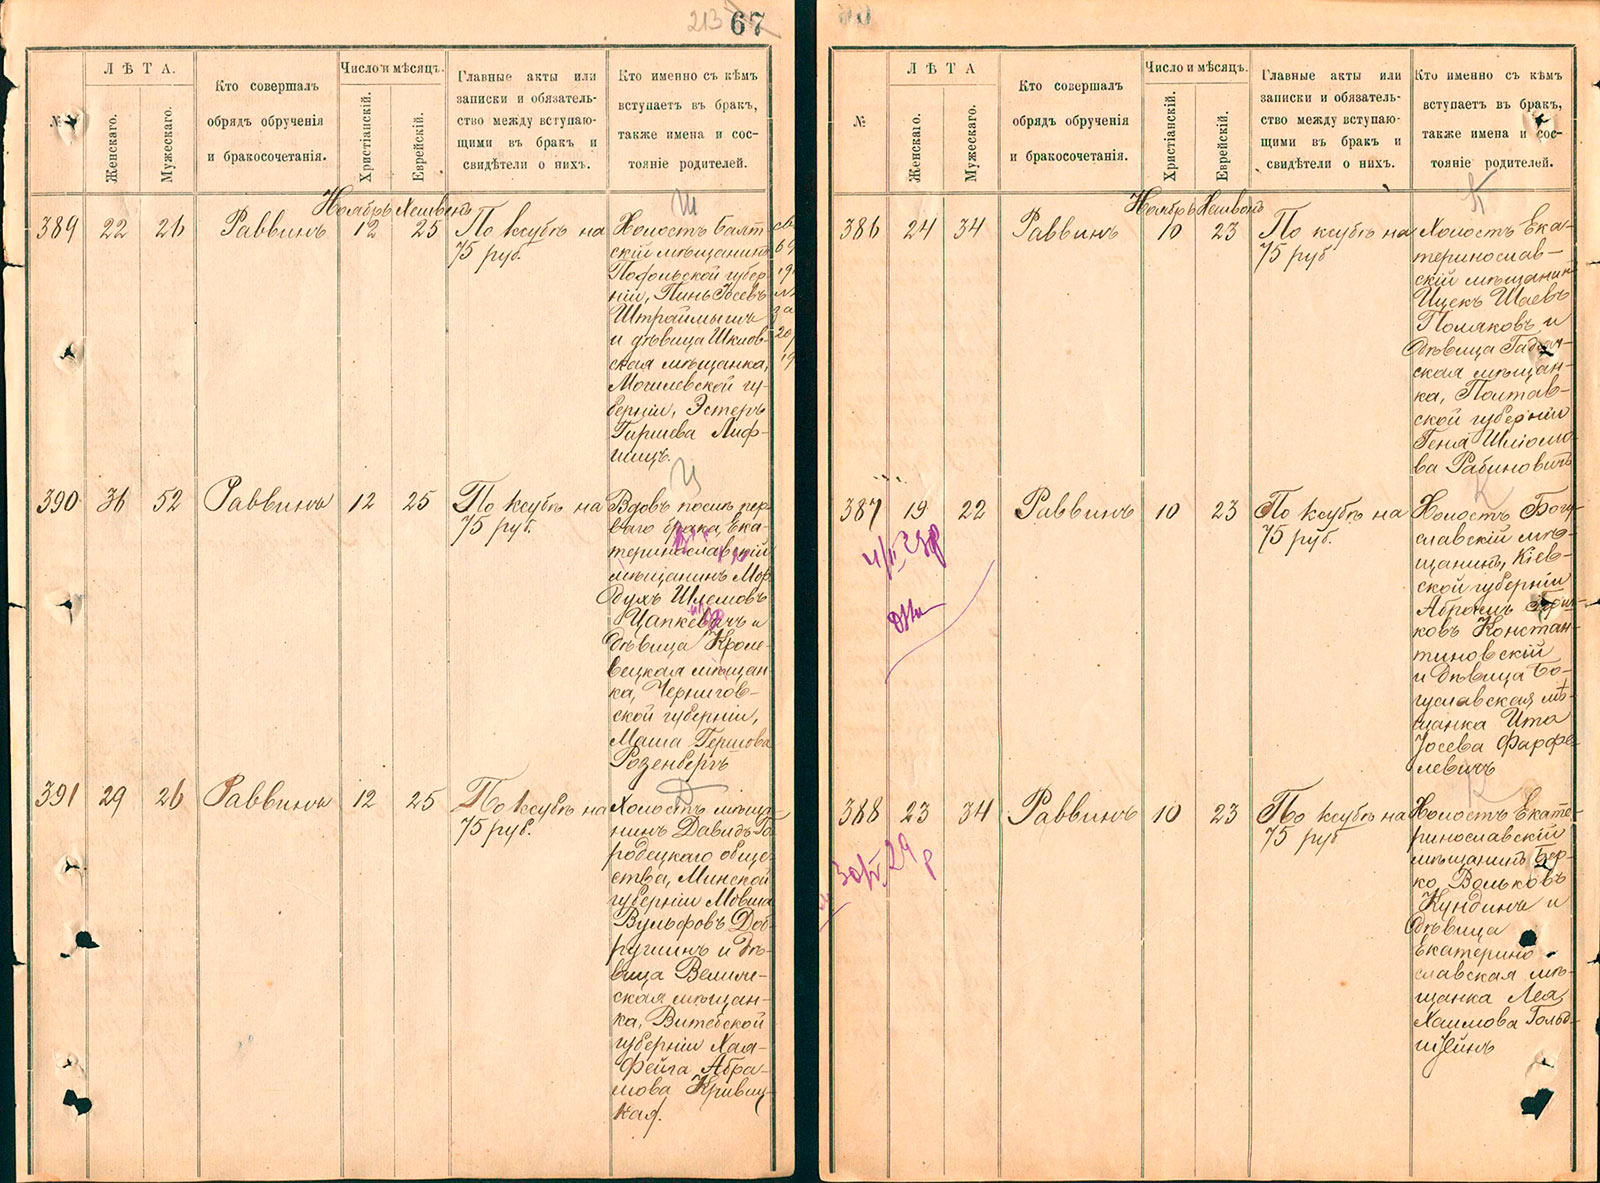 213 67
ЛѢТА.
Число и мѣсяцъ.
№
Женскаго.
Мужескаго.
Кто совершалъ
обрядъ обрученія
и бракосочетанія.
Христіанскій.
Еврейскій.
Главные акты или
записки и обязатель-
ство между вступаю-
щими въ бракъ и
свидѣтели о нихъ.
Кто именно съ кѣмъ
вступаетъ въ бракъ,
также имена и сос-
тояніе родителей.
Ноябрь Хешвонъ
389 22 26 Раввинъ 12 25
По ксубѣ на
75 руб.
Ш
Холостъ Балт-
скій мѣщанинъ
Подольской губер-
ніи, Пинь Іосевъ
Штраймышъ
и дѣвица Шклов-
ская мѣщанка,
Могилевской гу-
берніи, Эстеръ
Гиршева Лиф-
шицъ.
390 36 52 Раввинъ 12 25
По ксубѣ на
75 руб.
Ц
Вдовъ послѣ пер-
ваго брака, Ека-
теринославскій
мѣщанинъ Мор-
духъ Шлемовъ
Цапкевичъ и
дѣвица Кроле-
вецкая мѣщан-
ка, Чернигов-
ской губерніи,
Маша Гершова
Розенбергъ
391 29 26 Раввинъ 12 25
По ксубѣ на
75 руб.
Д
Холостъ мѣща-
нинъ Давидъ-Го-
родецкаго обще-
ства, Минской
губерніи Мовша
Вульфовъ Доб-
рушинъ и дѣ-
вица Велиж-
ская мѣщан-
ка, Витебской
губерніи Хая-
Фейга Абра-
мова Кривиц-
кая.
ЛѢТА
Число и мѣсяцъ.
№
Женскаго.
Мужескаго.
Кто совершалъ
обрядъ обрученія
и бракосочетанія.
Христіанскій.
Еврейскій.
Главные акты или
записки и обязатель-
ство между вступаю-
щими въ бракъ и
свидѣтели о нихъ.
Кто именно съ кѣмъ
вступаетъ въ бракъ,
также имена и сос-
тояніе родителей.
Ноябрь Хешвонъ
386 24 34 Раввинъ 10 23
По ксубѣ на
75 руб
П
Холостъ Ека-
теринослав-
скій мѣщанинъ
Ицекъ Шаевъ
Поляковъ и
дѣвица Гадяч-
ская мѣщан-
ка, Полтав-
ской губерніи
Геня Шліомо-
ва Рабиновичъ
387 19 22 Раввинъ 10 23
По ксубѣ на
75 руб.
К
Холостъ Богу-
славскій мѣ-
щанинъ, Кіев-
ской губерніи
Абрамъ
ковъ Констан-
тиновскій
и дѣвица Бо-
гуславская мѣ-
щанка Ита
Іосева Фарфе-
левичъ
388 23 34 Раввинъ 10 23
По ксубѣ на
75 руб
К
Холостъ Екате-
ринославскій
мѣщанинъ Бер-
ко Вольковъ
Кундинъ и
дѣвица
Екатерино-
славская мѣ-
щанка Лея
Хаимова Гольд-
штейнъ